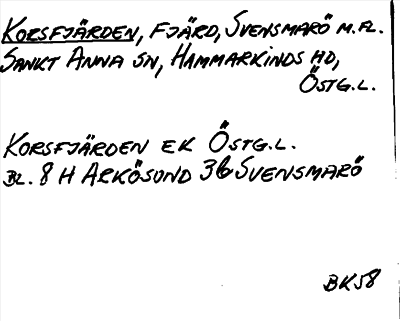 KORSFJÄRDEN, FJÄRD, SVENSMARÖ M.FL.
SANKT ANNA SN, HAMMARKINDS HD,
ÖSTG.L.
KORSFJÄRDEN EK ÖSTG.L.
BL. 8 H ARKÖSUND 3b SVENSMARÖ
BK58